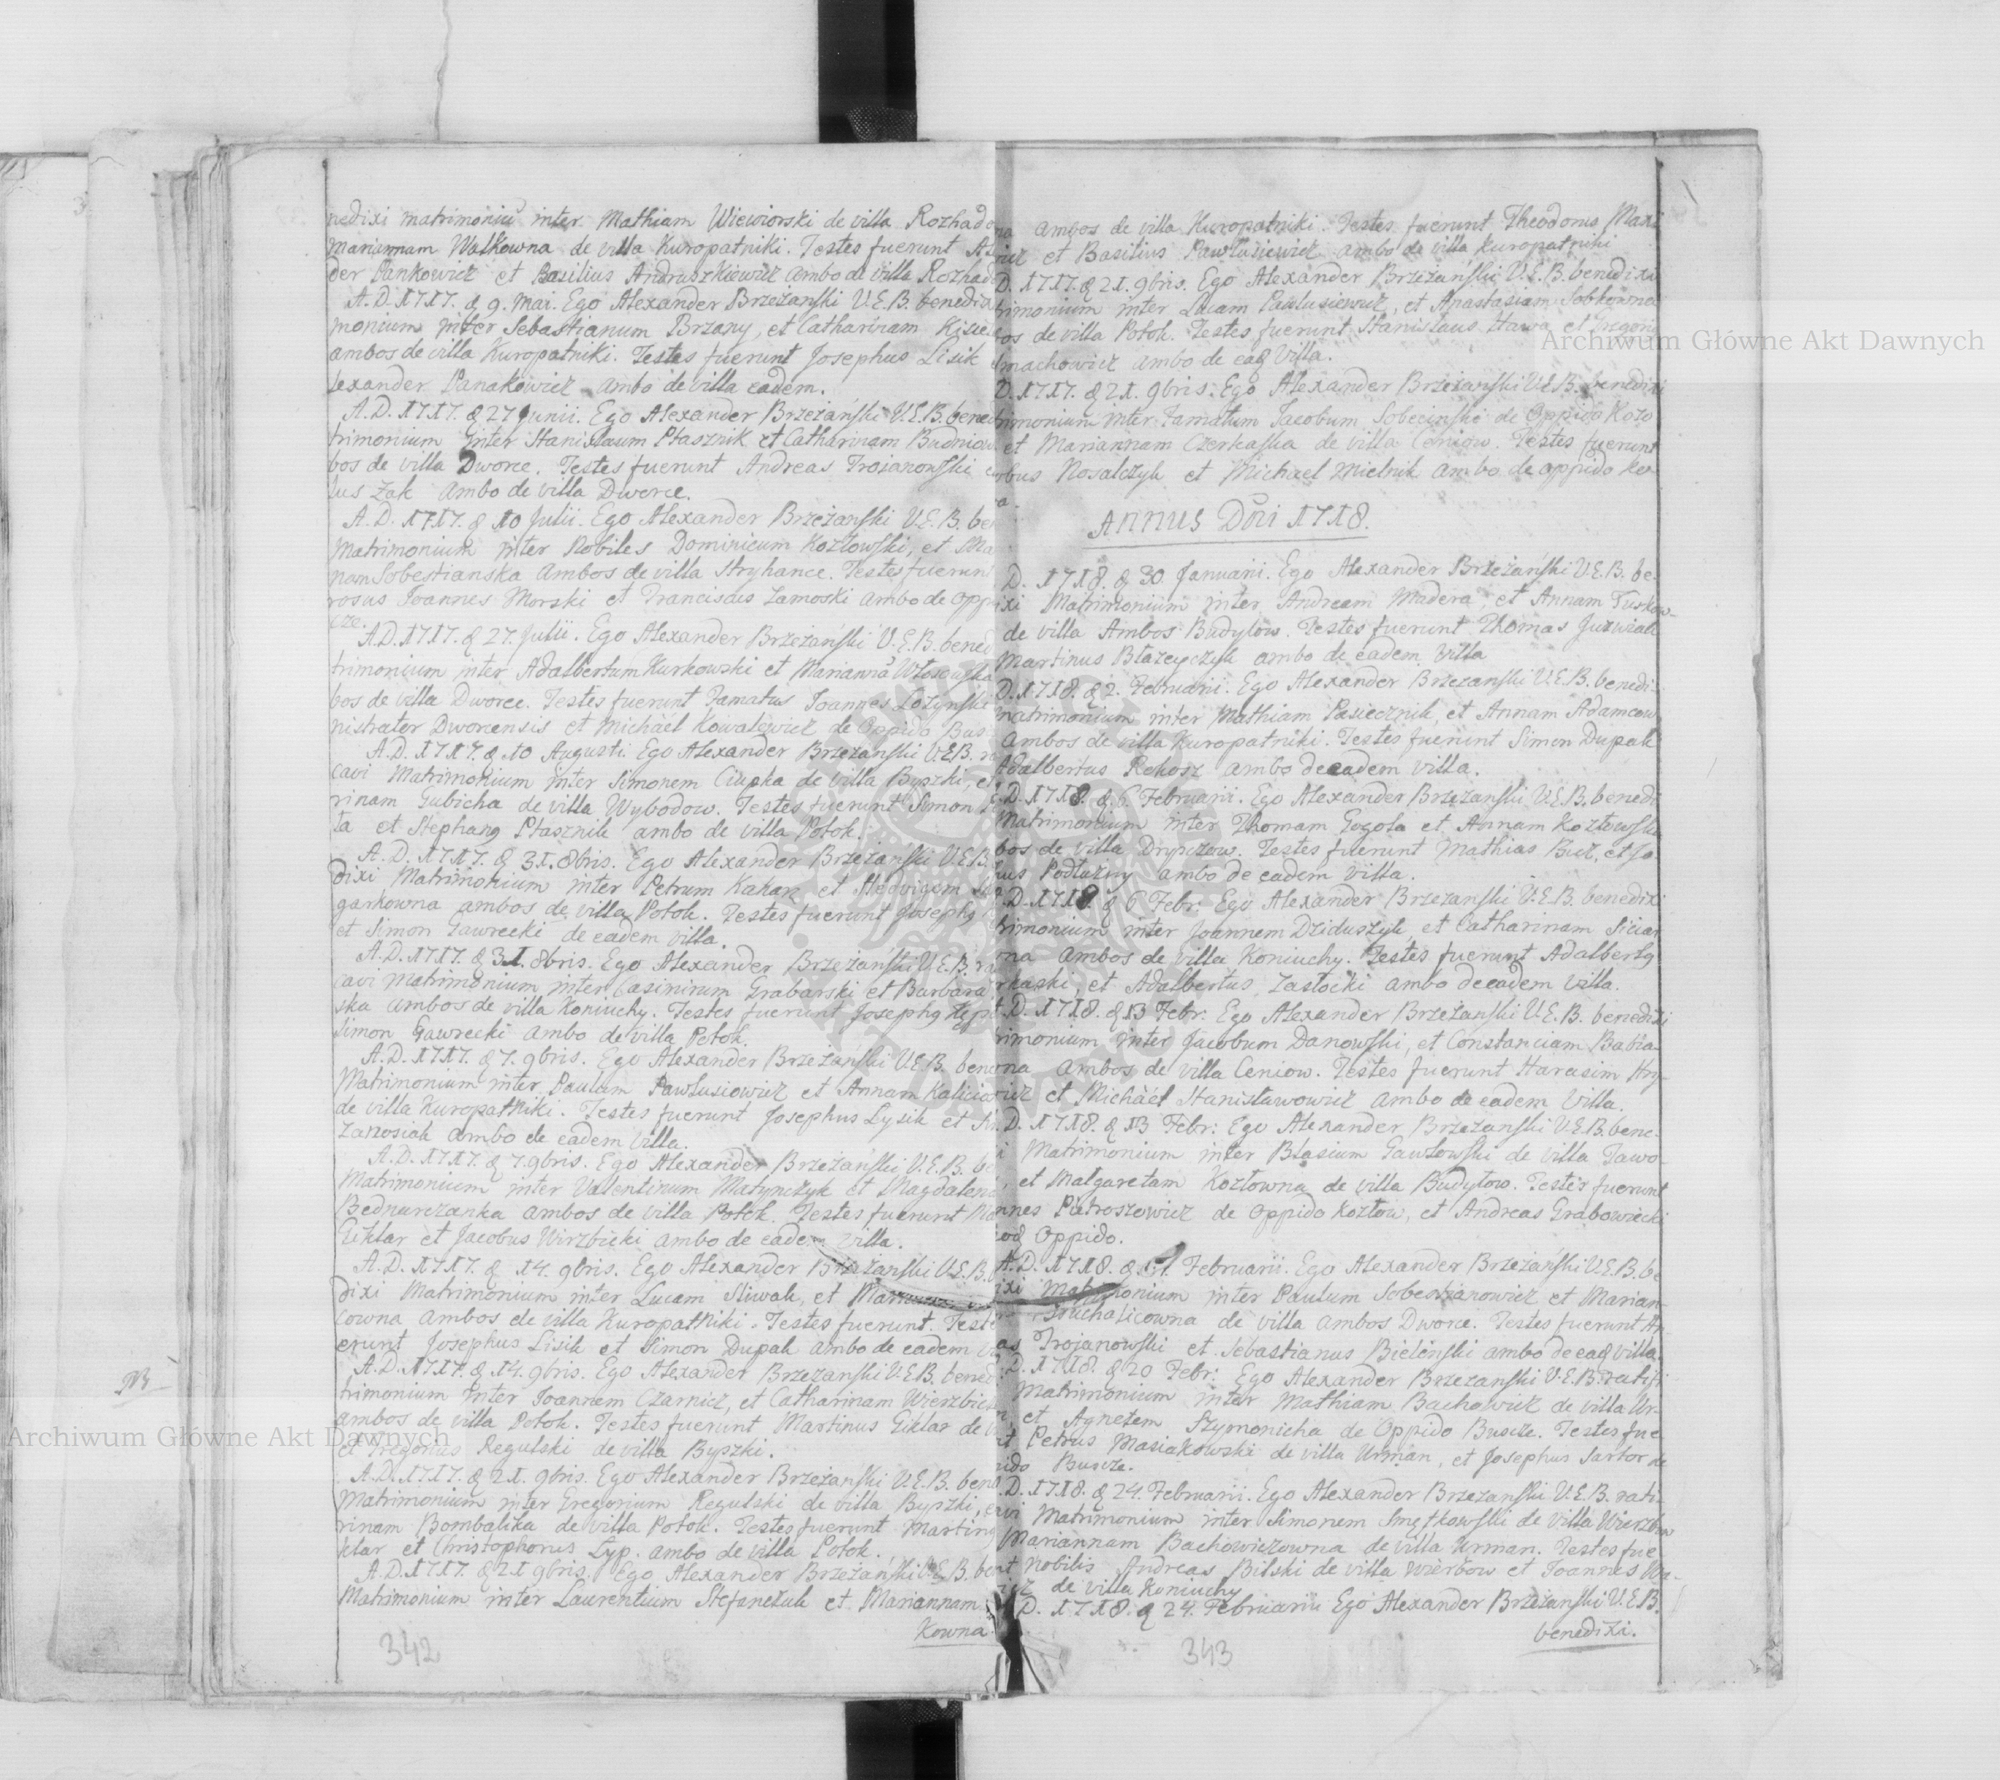 nedixi matrimoniũ inter Mathiam Wiewiorski de villa Rozhado
mariannam Walkowna de villa Kuropatniki. Testes fuerunt
der Pankowicz et Basilius Andruszkiewicz ambo de villa Rozhad
A.D. 1717. d 9. Mar. Ego Alexander Brzeżański V.E.B. benedixi
monium inter Sebastianum Brzany, et Catharinam
ambos de villa Kuropatniki. Testes fuerunt Josephus Lisik
lexander Panakowicz ambo de villa eadem.
A.D. 1717. d 27 Junii. Ego Alexander Brzeżański V.E.B. bened
trimonium inter Stanislaum Ptasznik et Catharinam Budniow
bos de villa Dworce. Testes fuerunt Andreas Troianowski
lus Zak ambo de villa Dworce.
A.D. 1717. d 10 Julii. Ego Alexander Brzeżański V.E.B. be
Matrimonium inter Nobiles Dominicum Kozłowski, et Ma
nam Sobestianska Ambos de villa Stryhance. Testes fuerunt
rosus Joannes Morski et Franciscus Zamoski ambo de oppi
cze.
A.D. 1717. d 27. Julii. Ego Alexander Brzeżański V.E.B. bened
trimonium inter Adalbertum Kurkowski et Mariannã Włosowska
bos de villa Dworce. Testes fuerunt Famatus Joannes Lozynski
nistrator Dworcensis et Michàèl Kowalewicz de Oppido Bus
A.D. 1717. d. 10 Augusti. Ego Alexander Brzeżański V.E.B. ra
cavi Matrimonium inter Simonem Ciupka de villa Byszki, et
rinam Gubicha de villa Wybodow. Testes fuerunt Simon
ta et Stephang Ptasznik ambo de villa Potok.
A.D. 1717. d 31. 8bris. Ego Alexander Brzeżański V.E.B.
dixi Matrimonium inter Petrum Kahan et Hedvigem
garkowna ambos de villa Potok. Testes fuerunt Josephg
et Simon Zawrecki de eadem villa.
A.D. 1717. d 31. 8bris. Ego Alexander Brzeżański V.E.B. ra
cavi Matrimonium inter Casimirum Grabarski et Barbarã
ska ambos de villa Koniuchy. Testes fuerunt Josephg
Simon Gawrecki ambo de villa Potok.
A.D. 1717. d 7. 9bris. Ego Alexander Brzeżański V.E.B. bene
Matrimonium inter Paulum Pawlusiowicz et Annam
de villa Kuropatniki. Testes fuerunt Josephus Lysik et
Zanosiak ambo de eadem villa.
A.D. 1717. d 7. 9bris. Ego Alexander Brzeżański V.E.B. be
Matrimonium inter Valentinum Matynczyk et Magdalena
Bednarczanka ambos de villa Potok. Testes fuerunt Ma
Giklar et Jacobus Wirzbicki ambo de eadem villa.
A.D. 1717. d 14. 9bris. Ego Alexander Brzeżański V.E.B.
dixi Matrimonium inter Lucam Sliwak, et
cowna Ambos de villa Kuropatniki. Testes fuerunt. Test
erunt Josephus Lisik et Simon Dupak ambo de eadem
A.D. 1717. d 14. 9bris. Ego Alexander Brzeżański V.E.B. bened
trimonium inter Joannem Czarnicz, et Catharinam
ambos de villa Potok. Testes fuerunt Martinus Giklar de
et Gregorius Regulski de villa Byszki.
A.D. 1717. d 21. 9bris. Ego Alexander Brzeżański V.E.B. bene
Matrimonium inter Gregorium Regulski de villa Byszki,
rinam Bombalika de villa Potok. Testes fuerunt Marting
klar et Christophorus Lyp. ambo de villa Potok.
A.D. 1717. d 21 9bris. Ego Alexander Brzeżański V.E.B. be
Matrimonium inter Laurentium Stefanczuk et Mariannam
kowna
342
ambos de villa Kuropatniki. Testes fuerunt Theodorus
wicz et Basilius Pawlusiewicz ambo de villa Kuropatniki
D. 1717. d 21. 9bris. Ego Alexander Brzeżański V.E.B. benedixi
trimonium inter Lucam Pawlusiewicz, et Anastasiam Sobkowna
bos de villa Potok. Testes fuerunt Stanislaus Hawa, et
machowicz ambo de eadg Villa.
D. 1717. d 21. 9bris. Ego Alexander Brzeżański V.E.B. benedixi
trimonium inter Famatum Jacobum Sobecinski de Oppido Kozo
et Mariannam Czerkaska de villa Ceniow. Testes fuerunt
cobus Nosalczyk et Michael Mielnik ambo de oppido
Annus Dñi 1718.
D. 1718. d 30. Januarii. Ego Alexander Brzeżański V.E.B. be-
ixi Matrimonium inter Andream Madera, et Annam Tuskow-
de villa Ambos Budyłow. Testes fuerunt Thomas
Martinus Błazeyczyk ambo de eadem villa
D. 1718. d 2. Februarii. Ego Alexander Brzeżański V.E.B. benedi-
matrimonium inter Mathiam Pasiecznik, et Annam Adamcow
ambos de villa Kuropatniki. Testes fuerunt Simon Dupak
Adalbertus Rekosz ambo de eadem villa.
D. 1718. d. 6. Februarii. Ego Alexander Brzeżański V.E.B. benedi
Matrimonium inter Thomam Gogola et Annam Kozłowska
bos de villa Dryszczow. Testes fuerunt Mathias Bucz, et Jo-
nus Podłuzny ambo de eadem villa.
D. 1718. d 6 Febr: Ego Alexander Brzeżański V.E.B. benedixi
trimonium inter Joannem Dziduszyk et Catharinam
na ambos de villa Koniuchy. Testes fuerunt Adalbertg
rkaski, et Adalbertus Zasłocki ambo de eadem villa.
D. 1718. d 13 Febr: Ego Alexander Brzeżański V.E.B. benedixi
trimonium inter Jacobum Danowski, et Constanciam Babia-
na ambos de villa Ceniow. Testes fuerunt Harasim Hry-
wicz et Michàèl Stanisławowicz ambo de eadem villa.
D. 1718. d 13 Febr: Ego Alexander Brzeżański V.E.B. bene-
i Matrimonium inter Blasium Gawłowski de villa Tawo-
et Malgaretam Kozłowna de villa Budyłow. Testes fuerunt
nnes Patroszewicz de oppido Kozłow, et Andreas Grabowiecki
eod Oppido.
A.D. 1718. d Februarii. Ego Alexander Brzeżański V.E.B. be
ixi Matrimonium inter Paulum Sobestianowicz et Marian-
Michalicowna de villa ambos Dworce. Testes fuerunt An
as Trojanowski et Sebastianus Bielenski ambo de eadg villa.
D. 1718. d 20 Febr: Ego Alexander Brzeżański V.E.B. ratifi
Matrimonium inter Mathiam Bachowicz de villa Ur-
et Agnetem Szymonicha de Oppido Buscze. Testes fue
nt Petrus Masiakowski de villa Urman, et Josephus Sartor de
pido Buscze.
D. 1718. d 24. Februarii. Ego Alexander Brzeżański V.E.B. rati-
cavi Matrimonium inter Simonem Smętkowski de Villa Wierzbow
Mariannam Bachowiczowna de villa Urman. Testes fue
nt Nobilis Andreas Bilski de villa Wierbow et Joannes
icz de villa Koniuchy
D. 1718. d 24. Februarii Ego Alexander Brzeżański V.E.B.
benedixi.
343
Archiwum Główne Akt Dawnych
Archiwum Główne Akt Dawnych